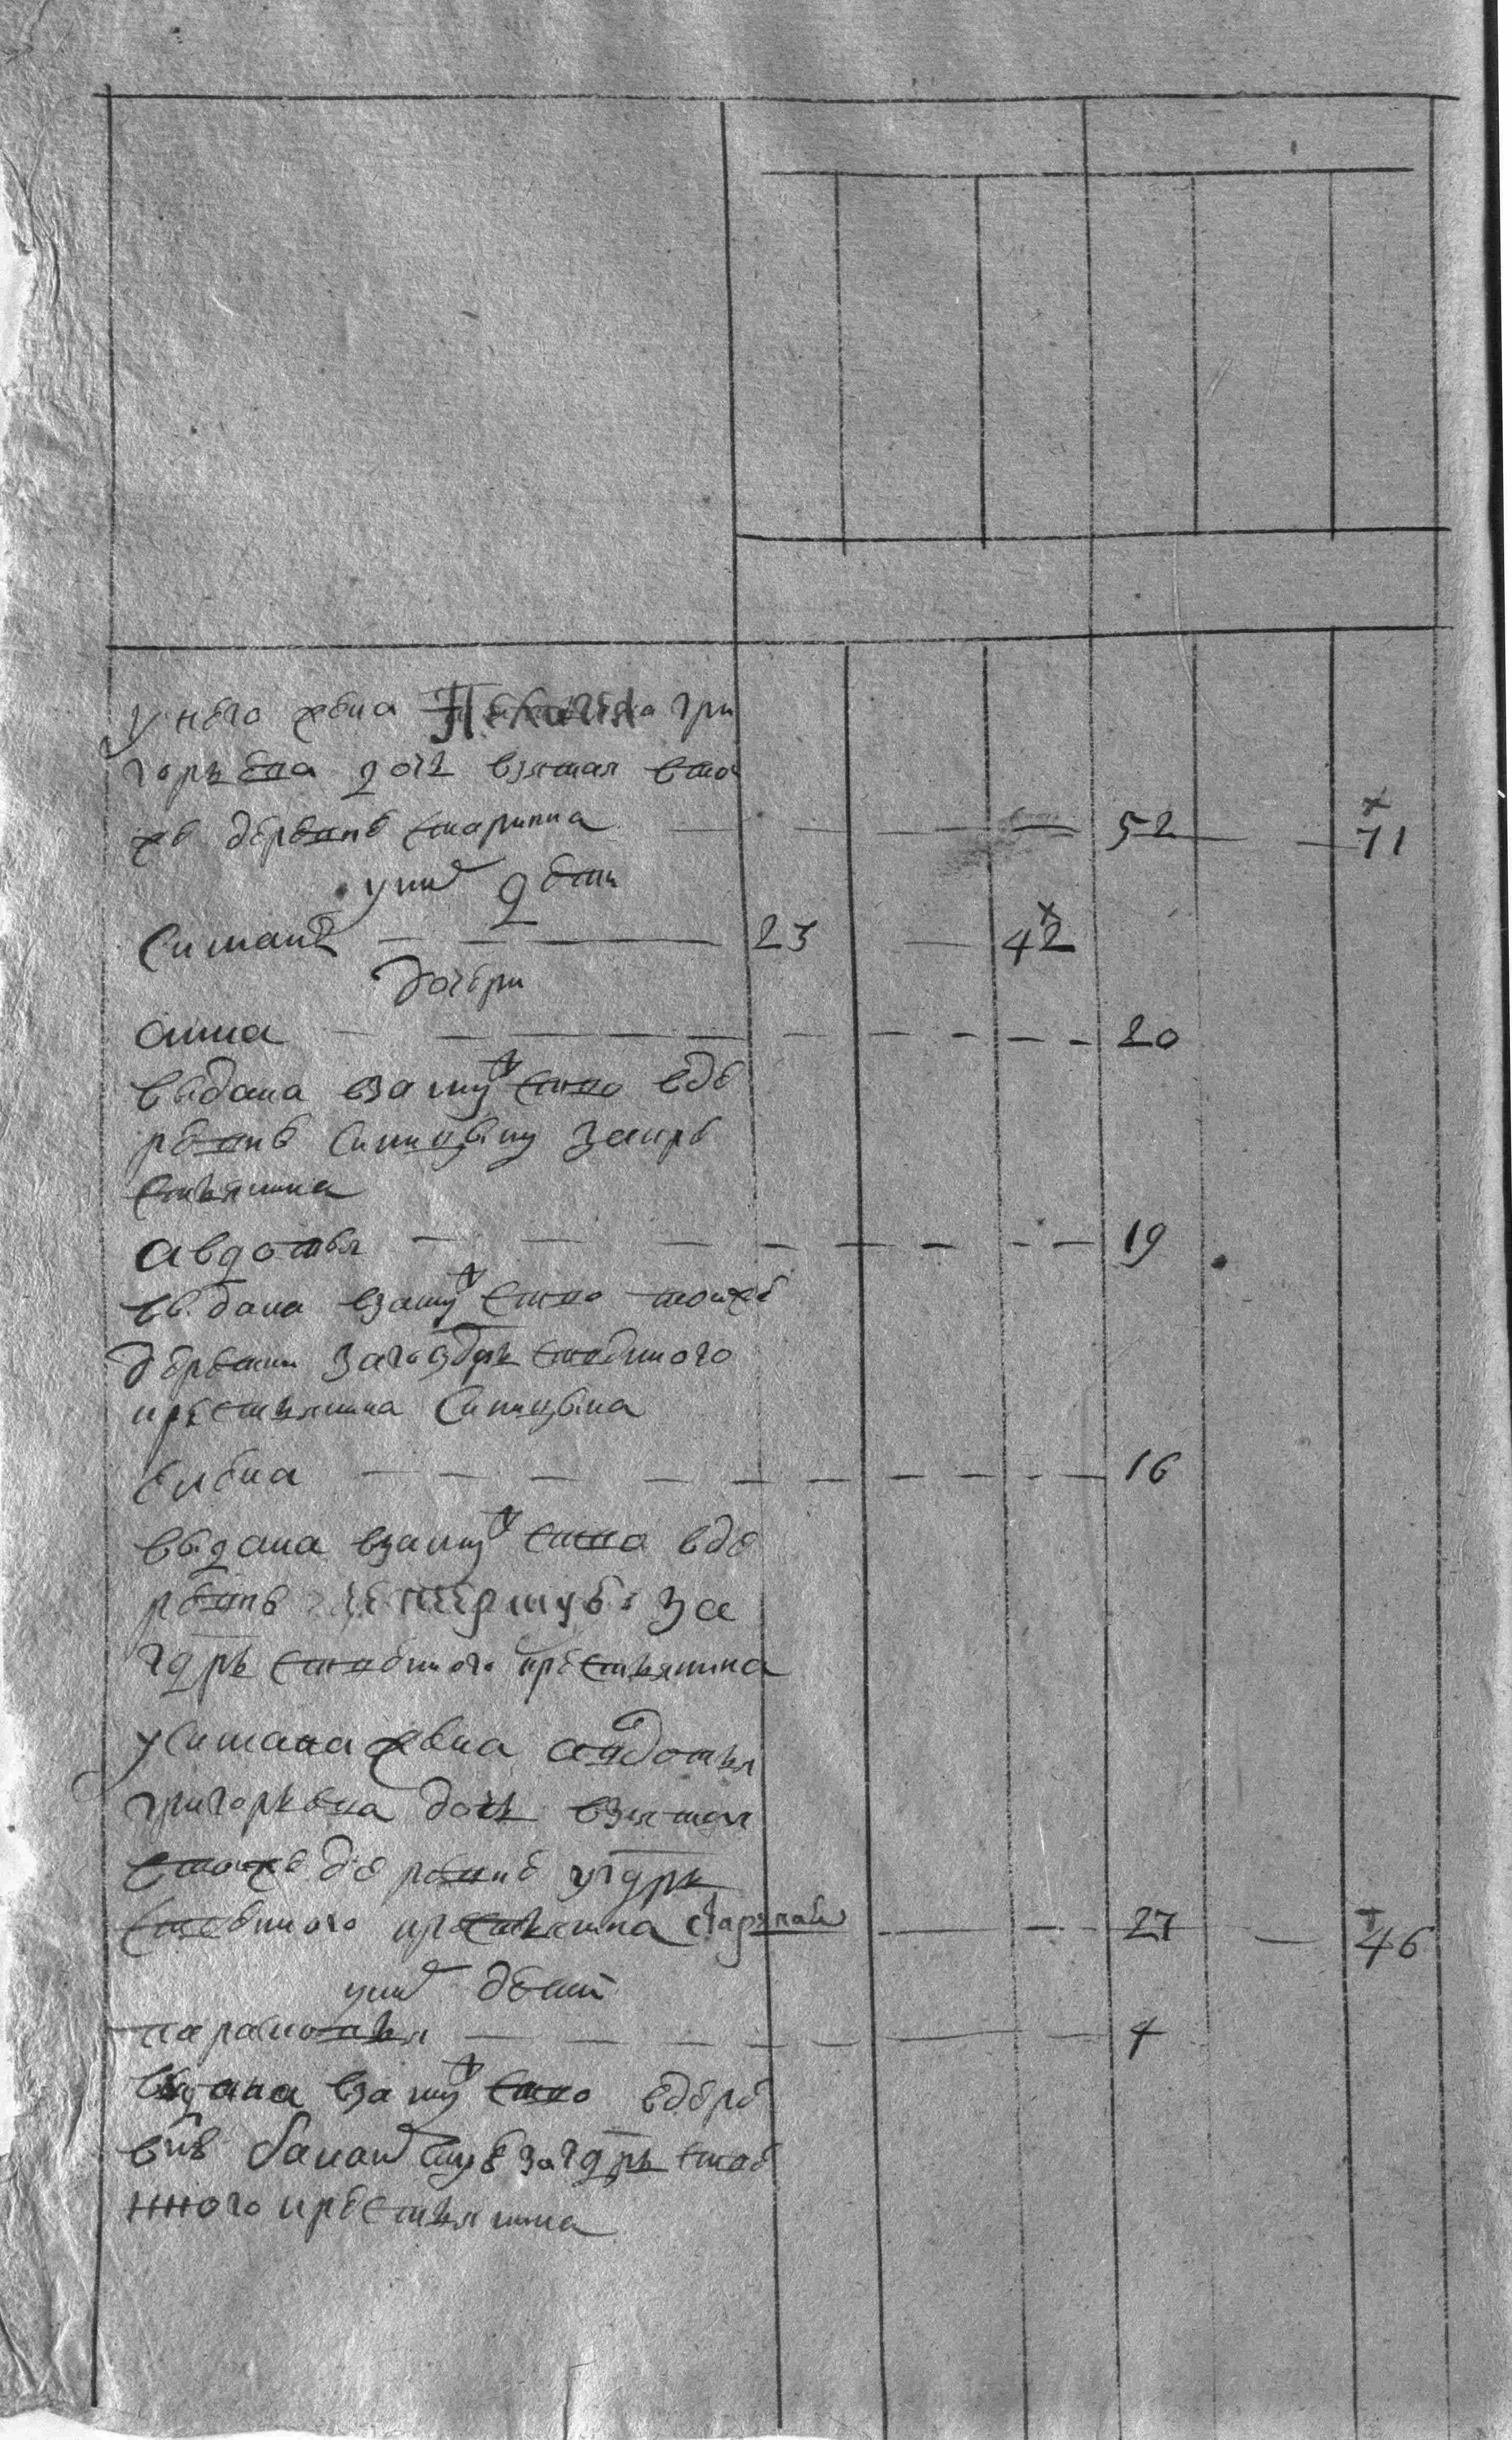 у него жена гри
горьева дочь взятая в то
же деревне старинна 52 71
у них дети
Ситан 23 42
дочери
анна 20
выдана в замужство в де
ревне Синицыну за кре
стьянина
авдотья 19
выдана в замужство тоиже
деревни за государственного
крестьянина Синицына
елена 16
выдана в замужство в де
ревне за
гдрьственного крестьянина
у Ситана жена авдотья
григорьевна дочь взятая
в тоиже деревне у гдрь
ственного крестьянина 27 46
у них дети
парасковья 4
выдана в замужство в дере
вне за гдрьстве
нного крестьянина